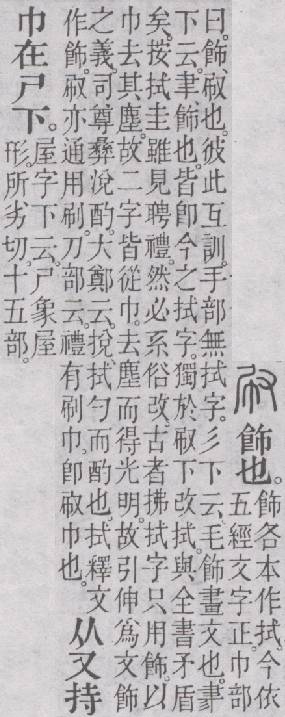 㕞飾也。飾各本作拭。今依
五經文字正。巾部
曰。飾、㕞也。彼此互訓。手部無拭字。彡下云、毛飾畫文也。𦘔
下云、聿飾也。皆卽今之拭字。獨於㕞下改拭。與全書矛盾
矣。按拭圭雖見聘禮。然必系俗改。古者拂拭字只用飾。以
巾去其塵。故二字皆從巾。去塵而得光明。故引伸爲文飾
之義。司尊彝涗酌。大鄭云。挩拭勺而酌也。拭釋文
作飾。㕞亦通用刷。刀部云。禮有刷巾。卽㕞巾也。
从又持
巾在尸下。屋字下云。尸象屋
形。所劣切。十五部。